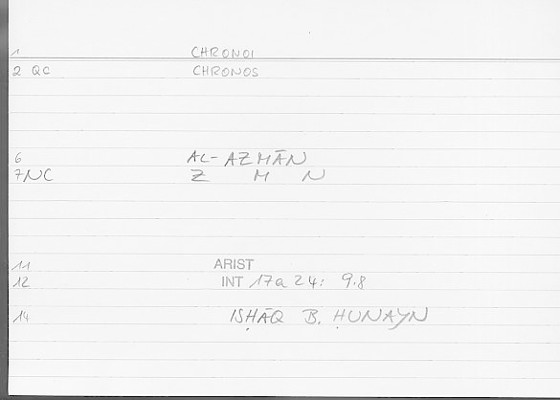 1 CHRONOI
2 QC CHRONOS
6 AL-AZMĀN
7NC Z M N
11 ARIST
12 INT 17a 24: 9.8
14 ISḤĀQ B. ḤUNAYN